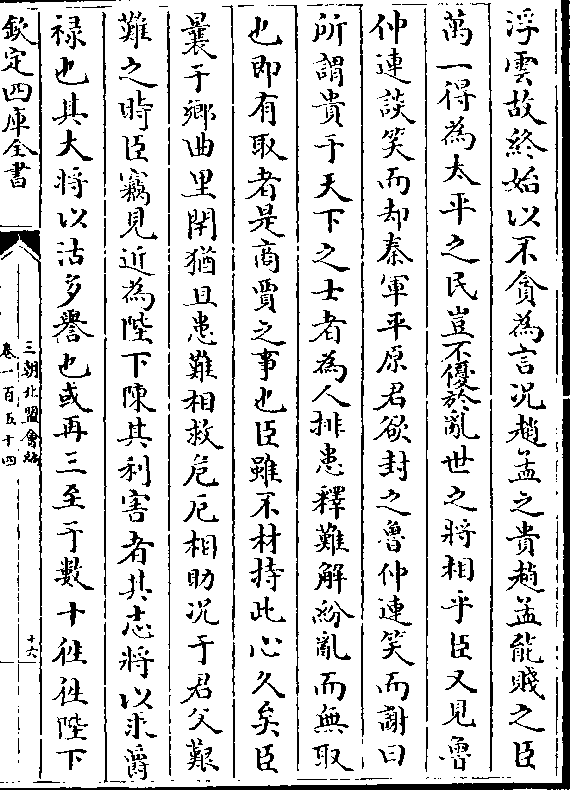 浮雲故終始以不貪為言况趙孟之貴趙孟能賤之臣
萬一得為太平之民豈不優於亂世之將相乎臣又見魯
仲連談笑而却秦軍平原君欲封之魯仲連笑而謝曰
所謂貴于天下之士者為人排患釋難解紛亂而無取
也即有取者是商賈之事也臣雖不材持此心久矣臣
曩于鄉曲里閈猶且患難相救危厄相助况于君父艱
難之時臣竊見近為陛下陳其利害者其志將以求爵
禄也其大將以沽多譽也或再三至于數十徃徃陛下
欽定四庫全書
三朝北盟會編
卷一百五十四
十六